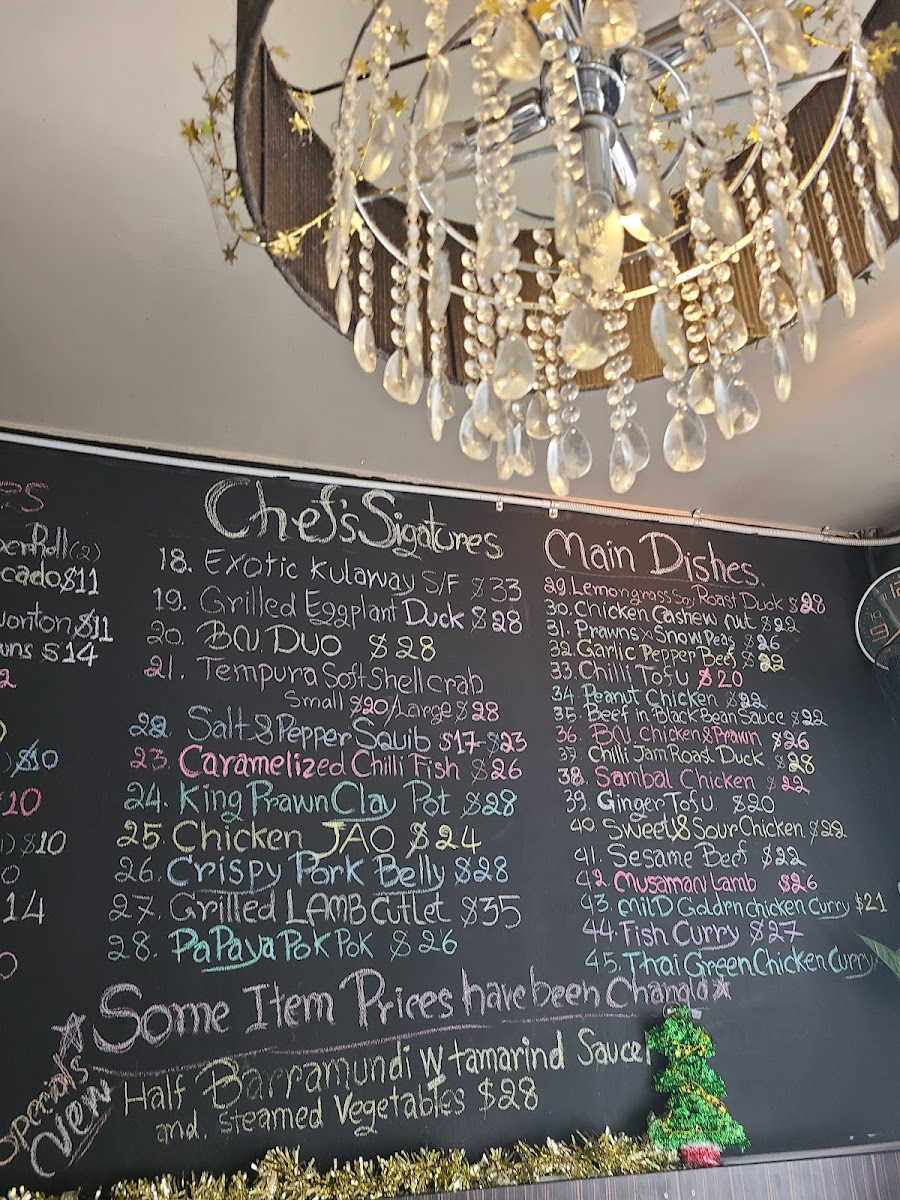 es
perRoll (2)
cado $11
Wonton $11
uns $14
2
) $10
$10
) $10
0
14
0
Chef's Sigatures
18. Exotic Kulaway S/F $33
19. Grilled Eggplant Duck $28
20. BN DUO $28
21. Tempura Soft Shell crab
Small $20/Large $28
22. Salt & Pepper Squib $17-$23
23. Caramelized Chilli Fish $26
24. King Prawn Clay Pot $28
25 Chicken JAO $24
26. Crispy Pork Belly $28
27. Grilled LAMB Cutlet $35
28. PaPaya Pok Pok $26
Main Dishes.
29. Lemongrass Soy Roast Duck $28
30. Chicken Cashew Nut $22
31. Prawns x Snow Peas $26
32. Garlic Pepper Beef $22
33. Chilli Tofu $20
34. Peanut Chicken $22
35. Beef in Black Bean Sauce $22
36 BN Chicken & Prawn $26
37. Chilli Jam Roast Duck $28
38. Sambal Chicken $22
39. Ginger Tofu. $20
40. Sweet & Sour Chicken $22
41. Sesame Beef $22
42. Musaman Lamb $26
43. MilD Goldrn Chicken Curry $21
44. Fish Curry $27
45. Thai Green Chicken Curry
Some Item Prices have been Changd
Specials
New
Half Barramundi W tamarind Sauce
and. Steamed Vegetables $28